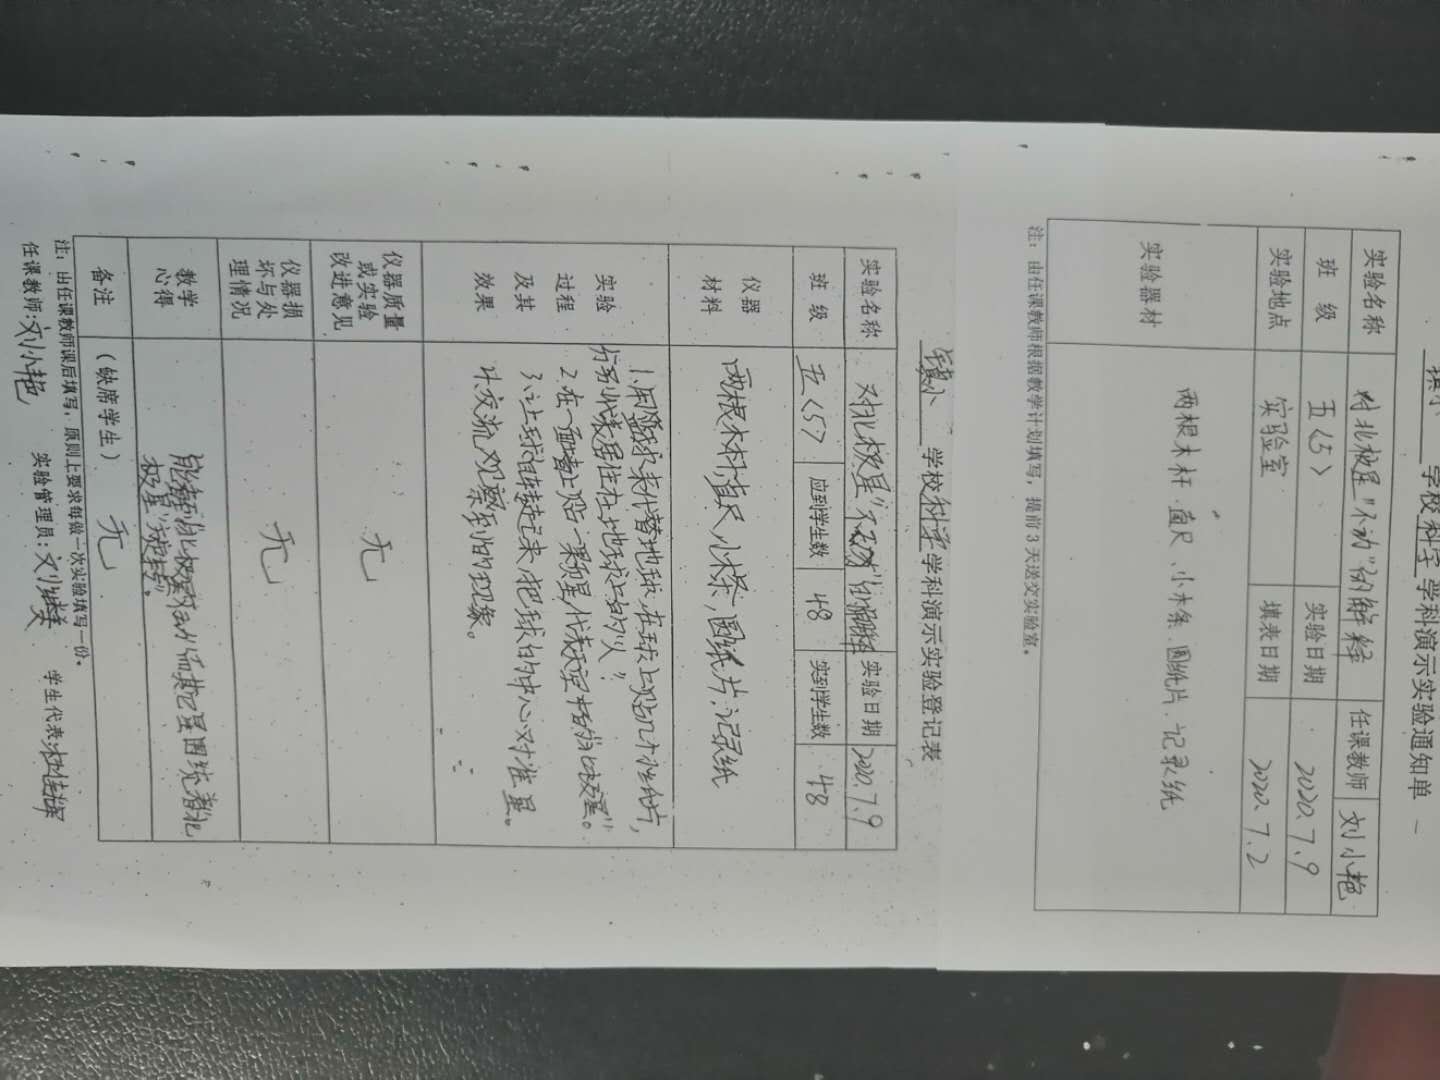 学校科学学科演示实验通知单
实验名称 对北极星“不动”的解释 任课教师 刘小艳
班 级 五<5> 实验日期 2020.7.9
实验地点 实验室 填表日期 2020.7.2
实验器材 两根木杆、直尺、小木条、圆纸片、记录纸
注：由任课教师根据教学计划填写，提前3天送交实验室。
镇小 学校科学学科演示实验登记表
实验名称 对北极星“不动”的解释 实验日期 2020.7.9
班 级 五<5> 应到学生数 48 实到学生数 48
仪器材料 两根木杆,直尺,小木条,圆纸片,记录纸
实验过程及其效果
1.用篮球来代替地球,在球上贴几个小纸片,
分别代表居住在地球上的“人”
2.在一面墙上贴一颗星,代表天空中的“北极星”。
3.让球自转起来,把球的中心对准星。
4.交流观察到的现象。
仪器质量或实验改进意见 无
仪器损坏与处理情况 无
教学心得
能看到北极星不动,而其它星围绕着北
极星“旋转”。
备注 （缺席学生） 无
注：由任课教师课后填写，原则上要求每做一次实验填写一份。
任课教师:刘小艳 实验管理员: 学生代表: